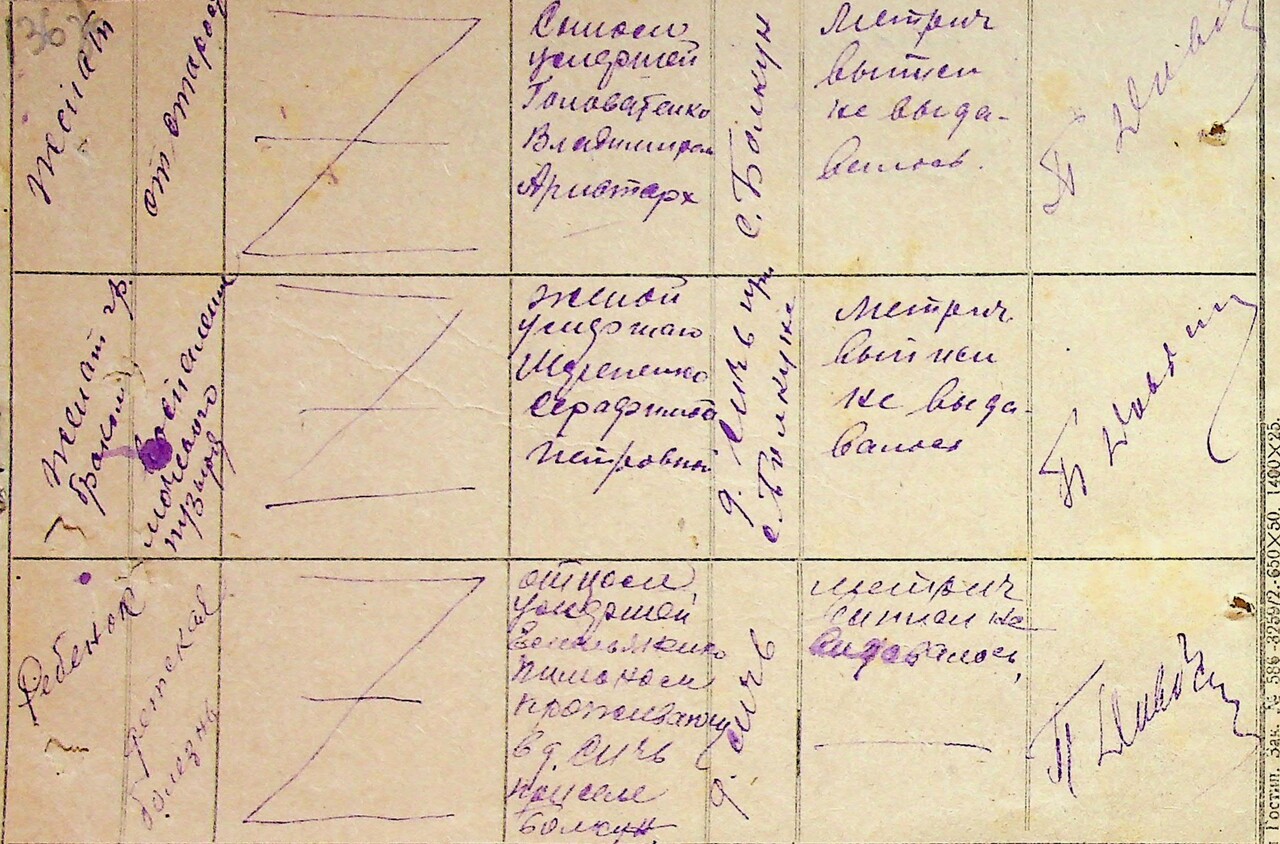 36
женат
от старос
Сыном
умершей
Головатенко
Владимиром
Аристарх
с. Болкун
Метрич
выписи
не выда-
валось.
женат гр.
браком
Воспаление
мочевого
пузыря
женой
умершаго
Серафимой
Петровной
д. Сичь при
с. Болкуне
метрич
выписи
не выда-
валось
Ребенок
детская
болезнь
отцом
умершей
Пимоном
проживающ
в д. Сичь
при селе
Болкун
д. Сичь
метрич
выписи не
выдавалось,
Гостип. Зак. № 586-8259/2. 650×50. 1400×25.